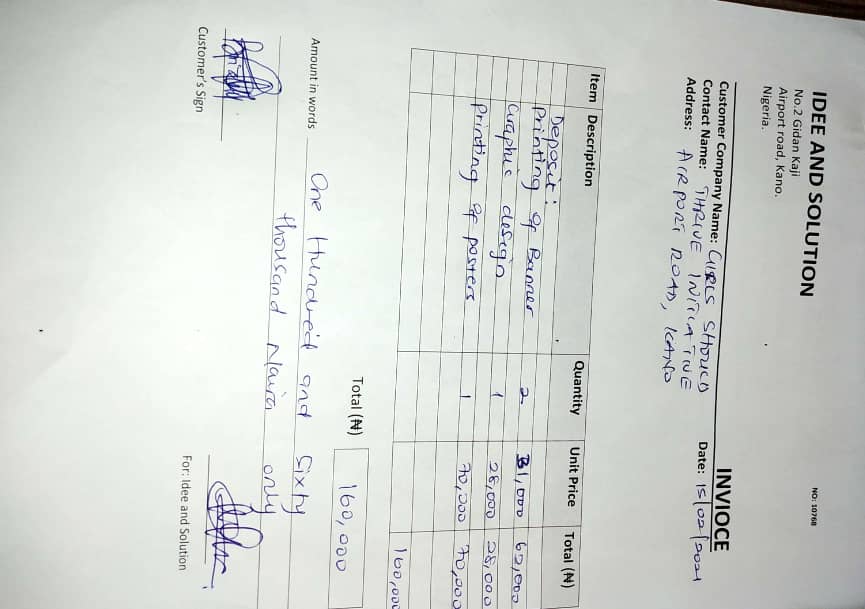 IDEE AND SOLUTION
NO: 10768
No.2 Gidan Kaji
Airport road, Kano.
Nigeria.
INVIOCE
Customer Company Name: GIRLS SHOULD
Contact Name: THRIVE INITIATIVE
Date: 15/02/2021
Address: AIRPORT ROAD, KANO
Item Description Quantity Unit Price Total (₦)
Deposit:
Printing of Banner 2 31,000 62,000
Graphic design 1 28,000 28,000
Printing of posters 1 70,000 70,000
160,000
Total (₦) 160,000
Amount in words One Hundred and Sixty
thousand Naira only
Customer's Sign
For: Idee and Solution